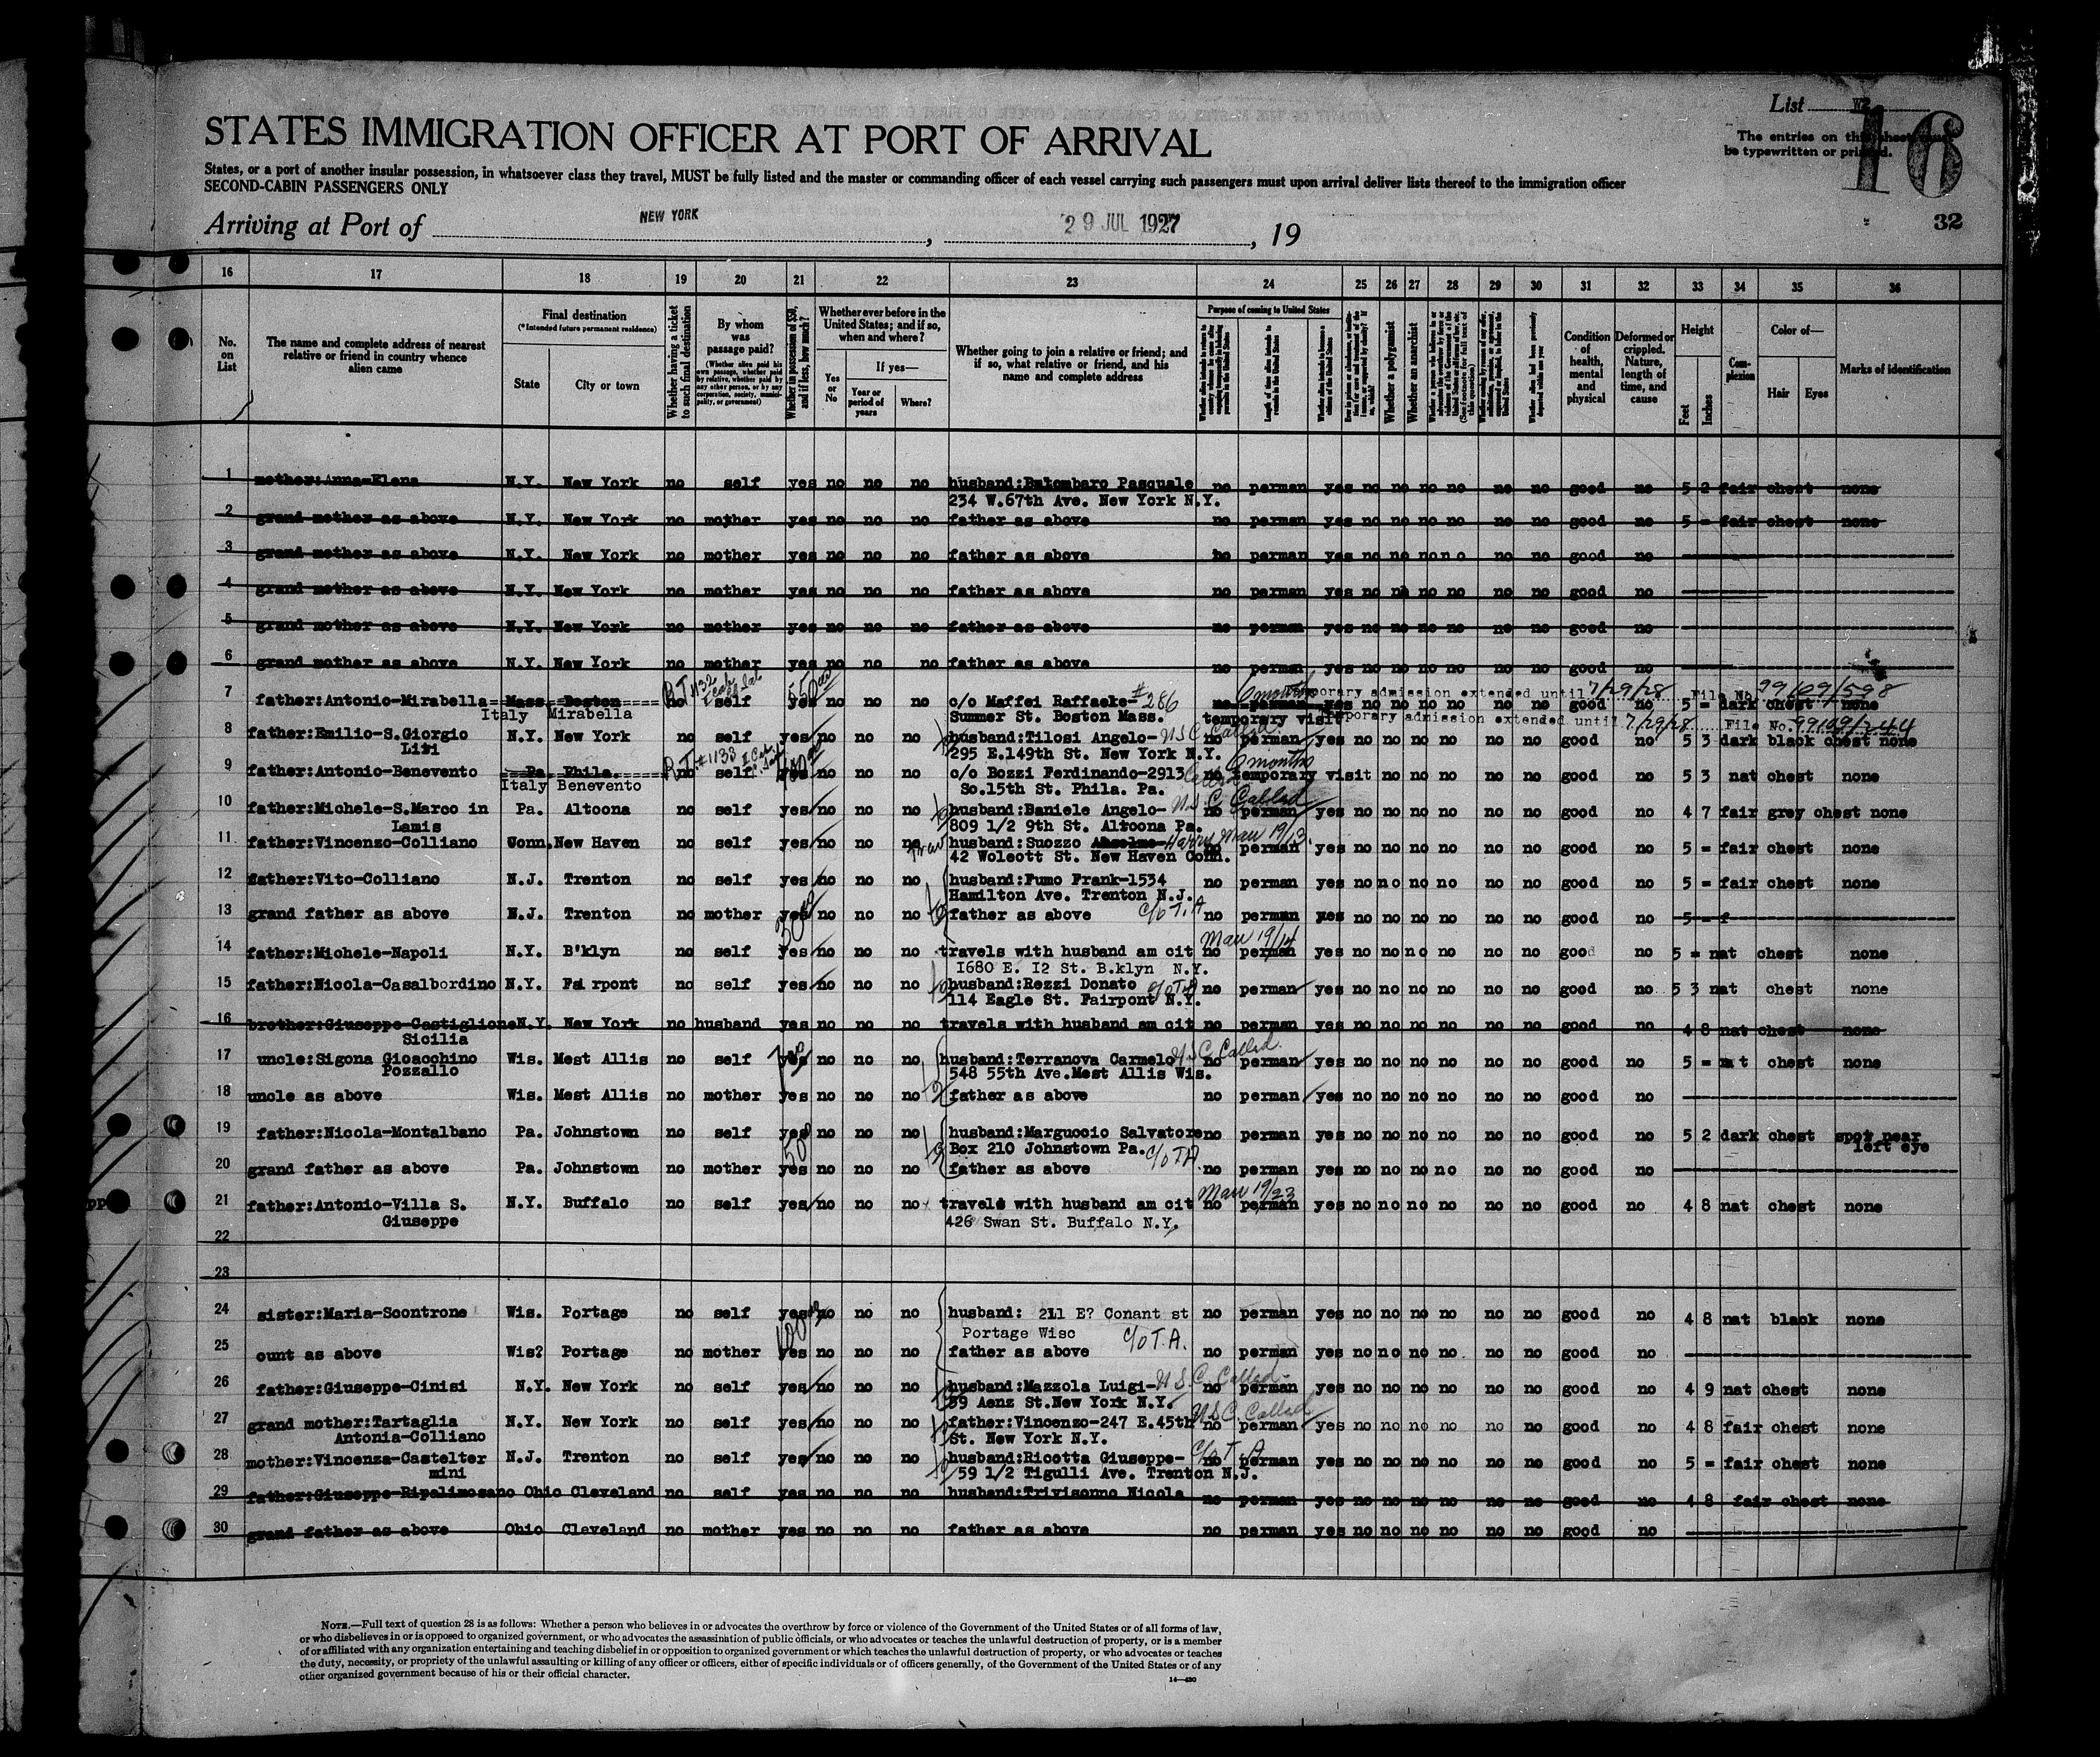 List VZ
The entries on this sheet must
be typewritten or printed.
16
32
STATES IMMIGRATION OFFICER AT PORT OF ARRIVAL
States, or a port of another insular possession, in whatsoever class they travel, MUST be fully listed and the master or commanding officer of each vessel carrying such passengers must upon arrival deliver lists thereof to the immigration officer
SECOND-CABIN PASSENGERS ONLY
Arriving at Port of NEW YORK, 29 JUL 1927, 19
16 17 18 19 20 21 22 23 24 25 26 27 28 29 30 31 32 33 34 35 36
No. on List
The name and complete address of nearest relative or friend in country whence alien came
Final destination
(*Intended future permanent residence)
State
City or town
Whether having a ticket to such final destination
By whom was passage paid?
(Whether alien paid his own passage, whether paid by relative, whether paid by any other person, or by any corporation, society, municipality, or government)
Whether in possession of $50, and if less, how much?
Whether ever before in the United States; and if so, when and where?
Yes or No
If yes—
Year or period of years
Where?
Whether going to join a relative or friend; and if so, what relative or friend, and his name and complete address
Purpose of coming to United States
Length of time alien intends to remain in the United States
Whether a polygamist
Whether an anarchist
Condition of health, mental and physical
Deformed or crippled. Nature, length of time, and cause
Height
Feet
Inches
Complexion
Color of—
Hair
Eyes
Marks of identification
1 mother:Anna-Elena N.Y. New York no self yes no no no husband:Balombaro Pasquale no perman yes no no no no no no good no 5 2 fair chest none
234 W.67th Ave. New York N.Y.
2 grand mother as above N.Y. New York no mother yes no no no father as above no perman yes no no no no no no good no 5 = fair chest none
3 grand mother as above N.Y. New York no mother yes no no no father as above no perman yes no no no no no no good no
4 grand mother as above N.Y. New York no mother yes no no no father as above no perman yes no no no no no no good no
5 grand mother as above N.Y. New York no mother yes no no no father as above no perman yes no no no no no no good no
6 grand mother as above N.Y. New York no mother yes no no no father as above no perman yes no no no no no no good no
R.T. 1132 550 6 months Temporary admission extended until 7/29/28 File No. 99109/598
7 father:Antonio-Mirabella Mass. Boston no self yes no no no c/o Maffei Raffaele-#286 no perman yes no no no no no no good no 5 = dark chest none
Italy Mirabella Summer St. Boston Mass. temporary visit Temporary admission extended until 7/29/28 File No. 99109/244
8 father:Emilio-S.Giorgio N.Y. New York no self yes no no no husband:Tilosi Angelo- U.S.C. Called no perman yes no no no no no no good no 5 3 dark black chest none
Liri 295 E.149th St. New York N.Y.
R.T. #1133 6 months
9 father:Antonio-Benevento Pa. Phila. no self yes no no no c/o Bozzi Ferdinando-2913 no temporary visit no no no no no no good no 5 3 nat chest none
Italy Benevento So.15th St. Phila. Pa.
10 father:Michele-S.Marco in Pa. Altoona no self yes no no no husband:Daniele Angelo- U.S.C. Called no perman yes no no no no no no good no 4 7 fair grey chest none
Lamis 809 1/2 9th St. Altoona Pa.
11 father:Vincenzo-Colliano Conn. New Haven no self yes no no no husband:Suozzo Anselmo- Harry Marr 19/13 no perman yes no no no no no no good no 5 = fair chest none
42 Wolcott St. New Haven Conn.
12 father:Vito-Colliano N.J. Trenton no self yes no no no husband:Fumo Frank-1534 no perman yes no no no no no no good no 5 = fair chest none
Hamilton Ave. Trenton N.J.
13 grand father as above N.J. Trenton no mother yes no no no father as above c/o T.A no perman yes no no no no no no good no 5 = f
Marr 19/14
14 father:Michele-Napoli N.Y. B'klyn no self yes no no no travels with husband am cit no perman yes no no no no no no good no 5 = nat chest none
1680 E. 12 St. B.klyn N.Y.
15 father:Nicola-Casalbordino N.Y. Fairpont no self yes no no no husband:Rezzi Donato c/o T.A no perman yes no no no no no no good no 5 3 nat chest none
114 Eagle St. Fairpont N.Y.
16 brother:Giuseppe-Castiglione N.Y. New York no husband yes no no no travels with husband am cit no perman yes no no no no no no good no 4 8 nat chest none
Sicilia
17 uncle:Sigona Gioacchino Wis. Mest Allis no self yes no no no husband:Terranova Carmelo U.S.C. Called. no perman yes no no no no no no good no 5 = nat chest none
Pozzallo 548 55th Ave.Mest Allis Wis.
18 uncle as above Wis. Mest Allis no mother yes no no no father as above no perman yes no no no no no no good no
19 father:Nicola-Montalbano Pa. Johnstown no self yes no no no husband:Marguccio Salvatore no perman yes no no no no no no good no 5 2 dark chest spot near
Box 210 Johnstown Pa. c/o T.A left eye
20 grand father as above Pa. Johnstown no mother yes no no no father as above no perman yes no no no no no no good no
Marr 19/23
21 father:Antonio-Villa S. N.Y. Buffalo no self yes no no no travels with husband am cit no perman yes no no no no no no good no 4 8 nat chest none
Giuseppe 426 Swan St. Buffalo N.Y.
22
23
24 sister:Maria-Scontrone Wis. Portage no self yes no no no husband: 211 E? Conant st no perman yes no no no no no no good no 4 8 nat black none
Portage Wisc c/o T.A.
25 ount as above Wis? Portage no mother yes no no no father as above no perman yes no no no no no no good no
26 father:Giuseppe-Cinisi N.Y. New York no self yes no no no husband:Mazzola Luigi- U.S.C. Called- no perman yes no no no no no no good no 4 9 nat chest none
59 Aenz St.New York N.Y.
27 grand mother:Tartaglia N.Y. New York no self yes no no no father:Vincenzo-247 E.45th U.S.C. Called no perman yes no no no no no no good no 4 8 fair chest none
Antonia-Colliano St. New York N.Y.
28 mother:Vincenza-Castelter N.J. Trenton no self yes no no no husband:Ricotta Giuseppe- c/o T.A no perman yes no no no no no no good no 5 = fair chest none
mini 59 1/2 Tigulli Ave. Trenton N.J.
29 father:Giuseppe-Ripalimosano Ohio Cleveland no self yes no no no husband:Trivisonno Nicola no perman yes no no no no no no good no 4 8 fair chest none
30 grand father as above Ohio Cleveland no mother yes no no no father as above no perman yes no no no no no no good no
NOTE.—Full text of question 28 is as follows: Whether a person who believes in or advocates the overthrow by force or violence of the Government of the United States or of all forms of law,
or who disbelieves in or is opposed to organized government, or who advocates the assassination of public officials, or who advocates or teaches the unlawful destruction of property, or is a member
of or affiliated with any organization entertaining and teaching disbelief in or opposition to organized government or which teaches the unlawful destruction of property, or who advocates or teaches
the duty, necessity, or propriety of the unlawful assaulting or killing of any officer or officers, either of specific individuals or of officers generally, of the Government of the United States or of any
other organized government because of his or their official character.
14—430